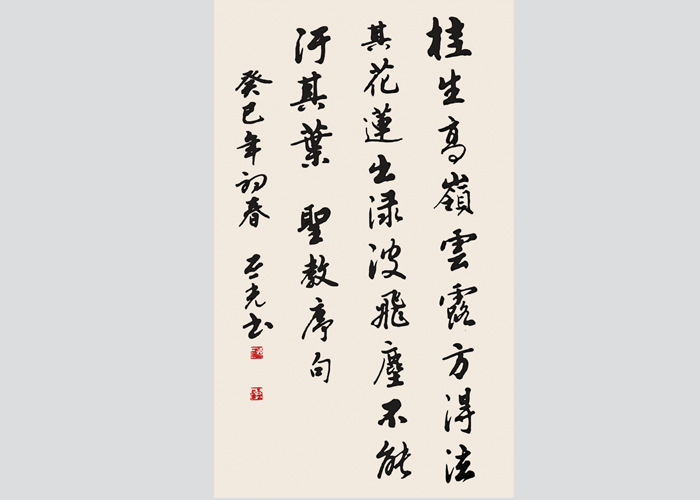 桂生高嶺雲露方得泫
其花蓮出渌波飛塵不能
汙其葉 聖教序句
癸巳年初春 光书